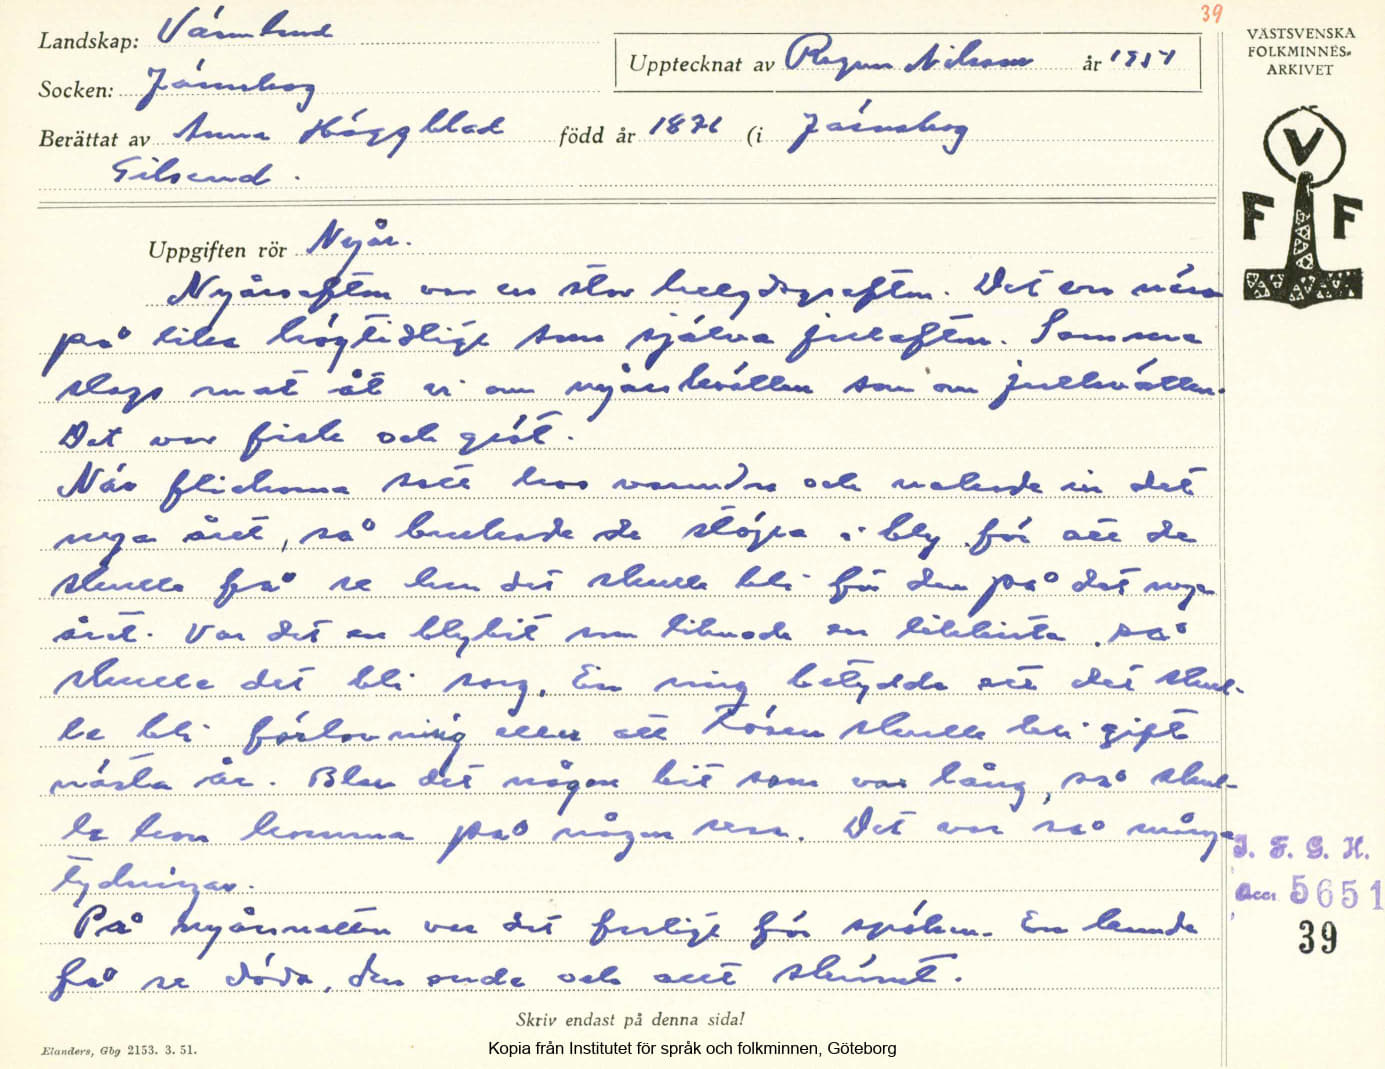 39
Landskap: Värmland
Upptecknat av Ragnar Nilsson år 1951
VÄSTSVENSKA
FOLKMINNES-
ARKIVET
Socken: Järnskog
Berättat av Anna Häggblad född år 1871 (i Järnskog
V
F F
Uppgiften rör Nyår.
Nyårsafton var en stor helgdagsafton. Det var nära
på lika högtidligt som själva julafton. Samma
slags mat åt vi om nyårskvällen som om julkvällen.
Det var fisk och gröt.
När flickorna satt hos varandra och vakade in det
nya året, så brukade de stöpa i bly för att de
skulle få se hur det skulle bli för dem på det nya
året. Var det en blybit som liknade en likkista, så
skulle det bli sorg. En ring betydde att det skul-
le bli förlovning eller att tösen skulle bli gift
nästa år. Blev det någon bit som var lång, så skul-
le hon komma på någon resa. Det var så många
tydningar.
J. F. G. H.
Acc: 5651
39
På nyårsnatten var det farligt för spöken. En kunde
få se döda, den onde och allt skämt.
Skriv endast på denna sida!
Elanders, Gbg 2153. 3. 51.
Kopia från Institutet för språk och folkminnen, Göteborg